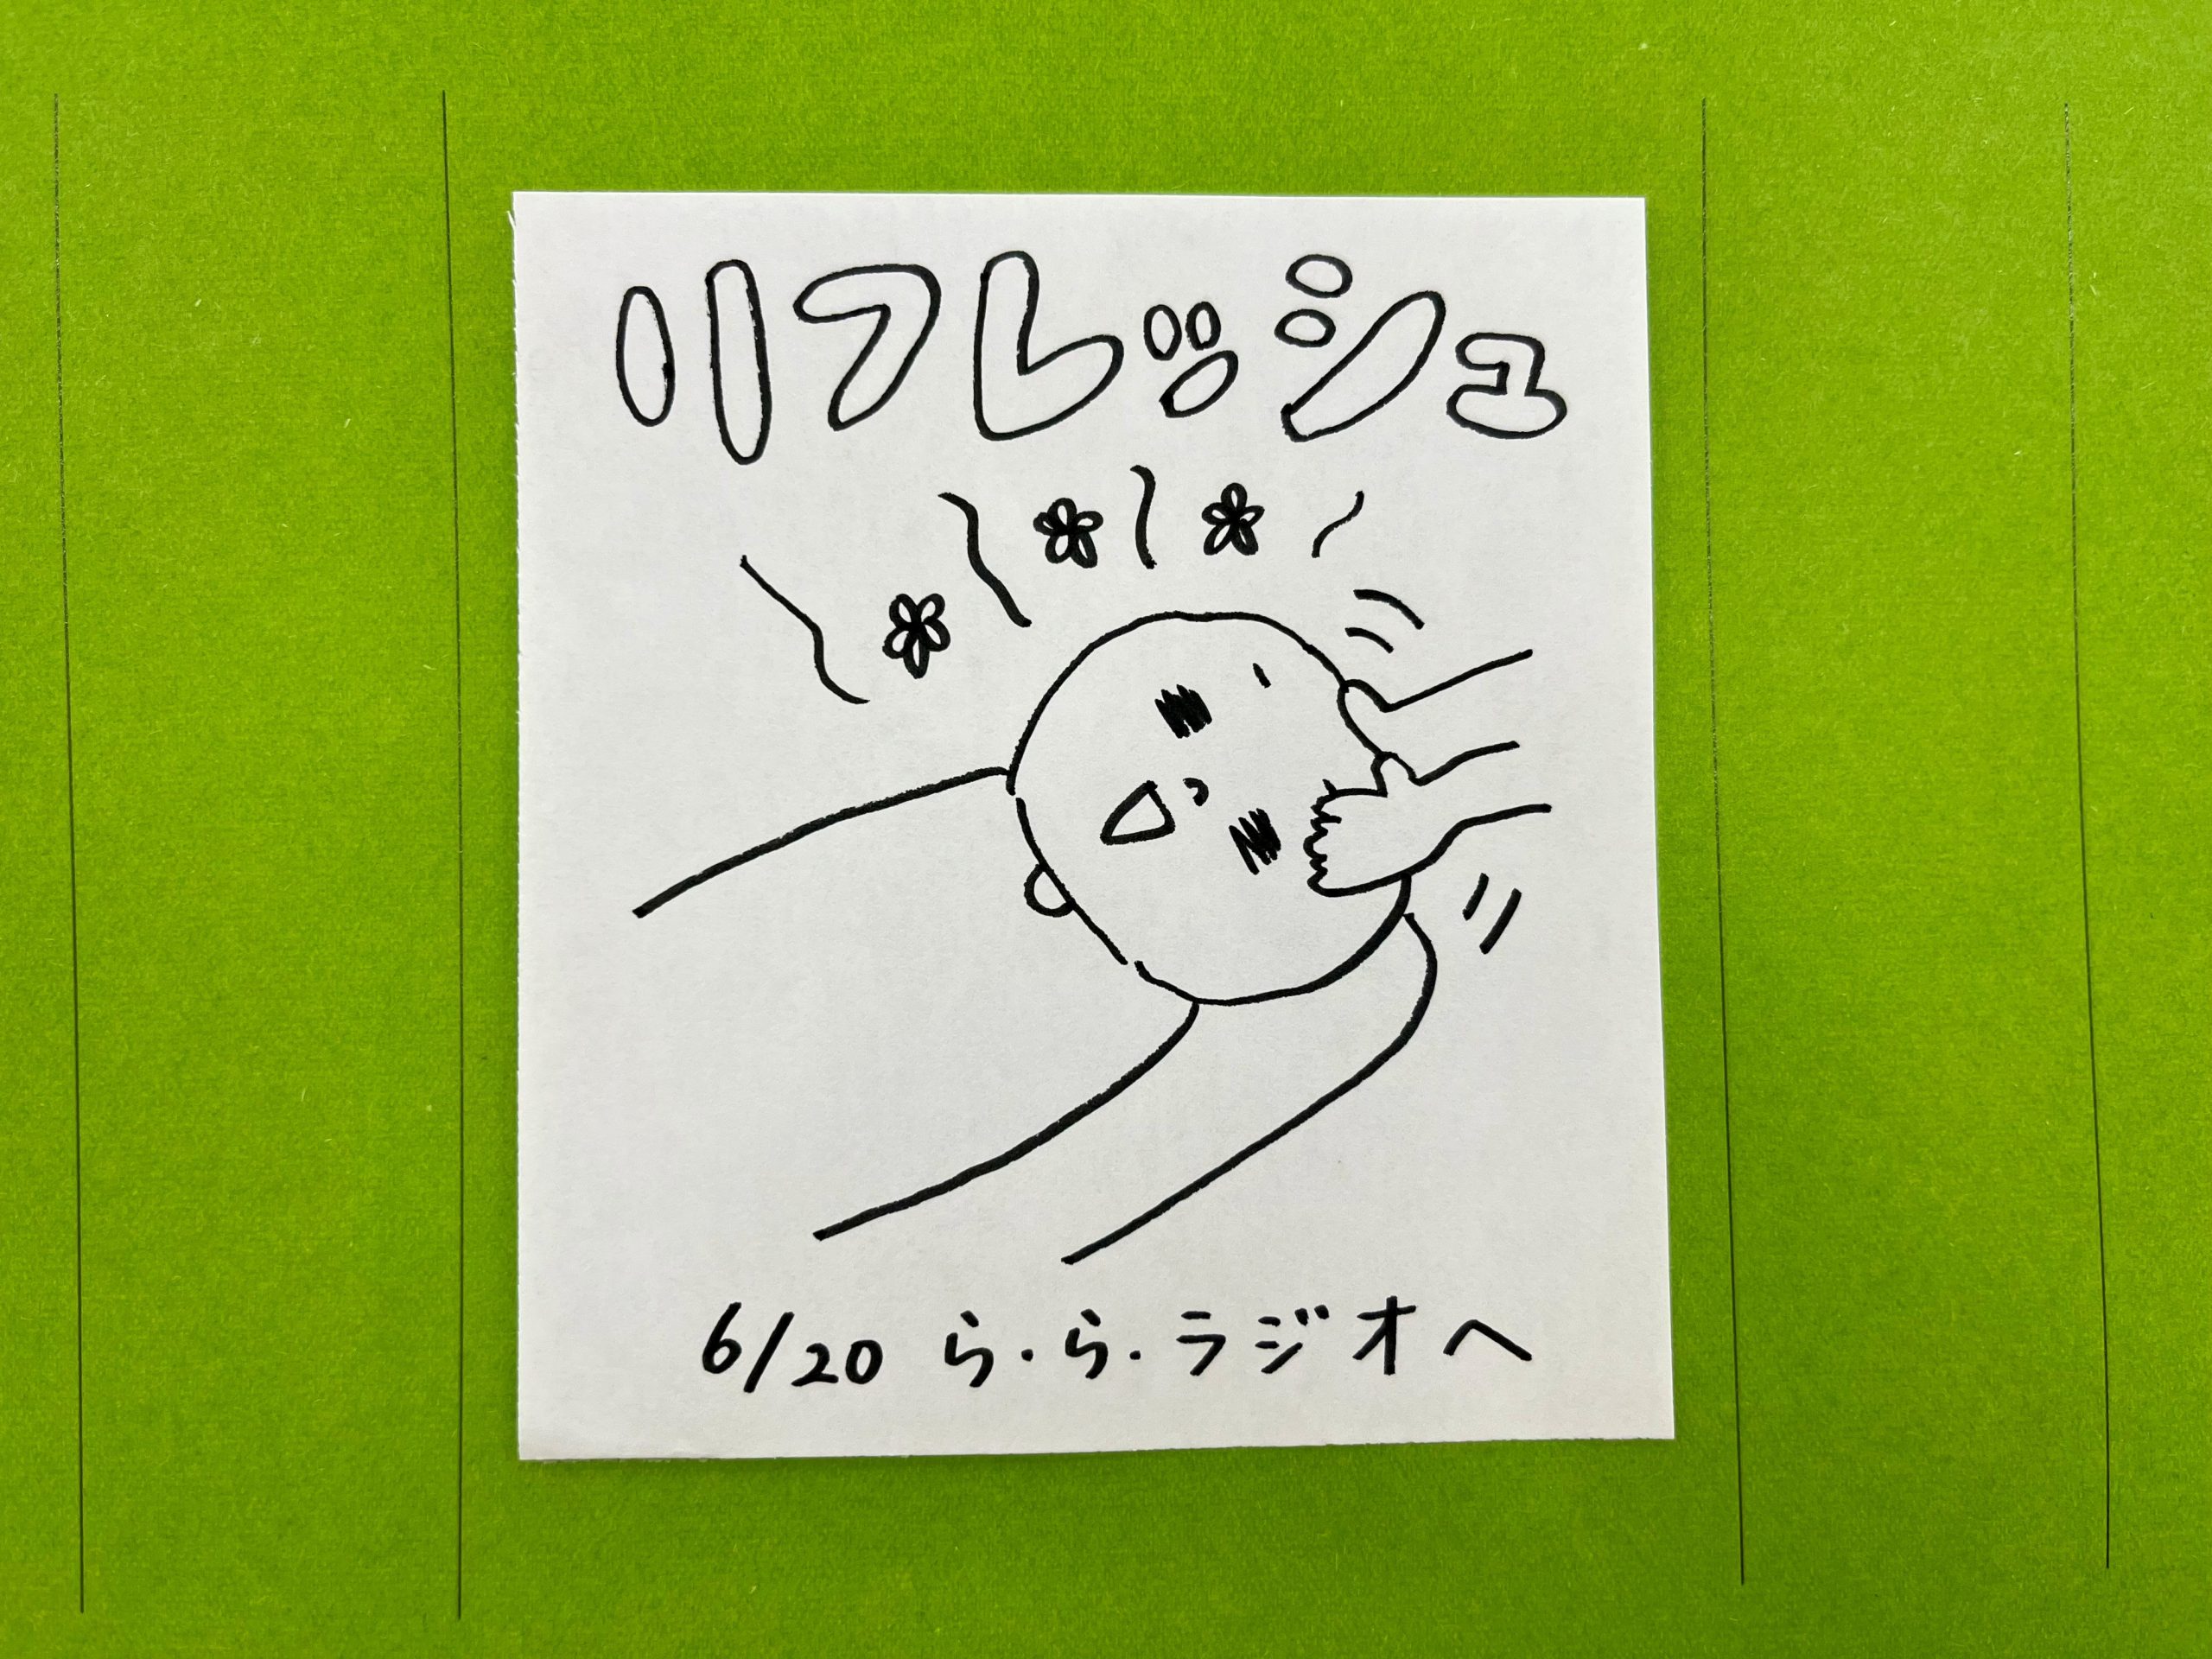 リフレッシュ
6/20 ら・ら・ラジオへ